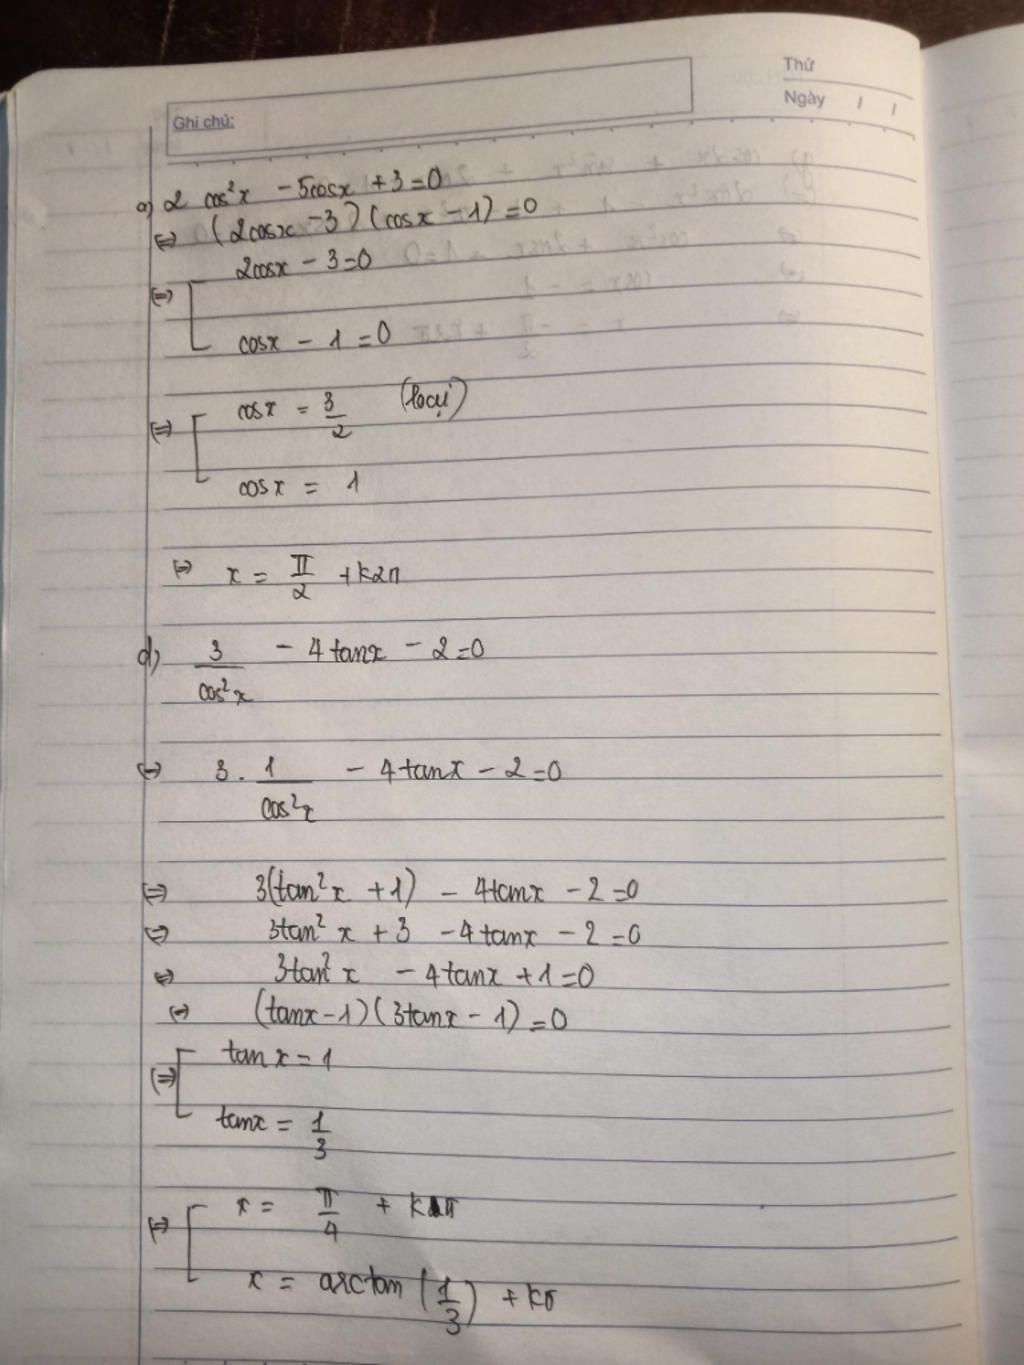 Thứ
Ngày / /
Ghi chú:
a) 2 cos²x - 5cosx + 3 = 0
⇔ (2cosx - 3)(cosx - 1) = 0
2cosx - 3 = 0
⇔ [
cosx - 1 = 0
⇔ [ cosx = 3/2 (loại)
cosx = 1
⇔ x = π/2 + k2π
d) 3/cos²x - 4tanx - 2 = 0
⇔ 3 . 1/cos²x - 4tanx - 2 = 0
⇔ 3(tan²x + 1) - 4tanx - 2 = 0
⇔ 3tan²x + 3 - 4tanx - 2 = 0
⇔ 3tan²x - 4tanx + 1 = 0
⇔ (tanx - 1)(3tanx - 1) = 0
⇔ [ tanx = 1
tanx = 1/3
⇔ [ x = π/4 + kπ
x = arctan(1/3) + kπ